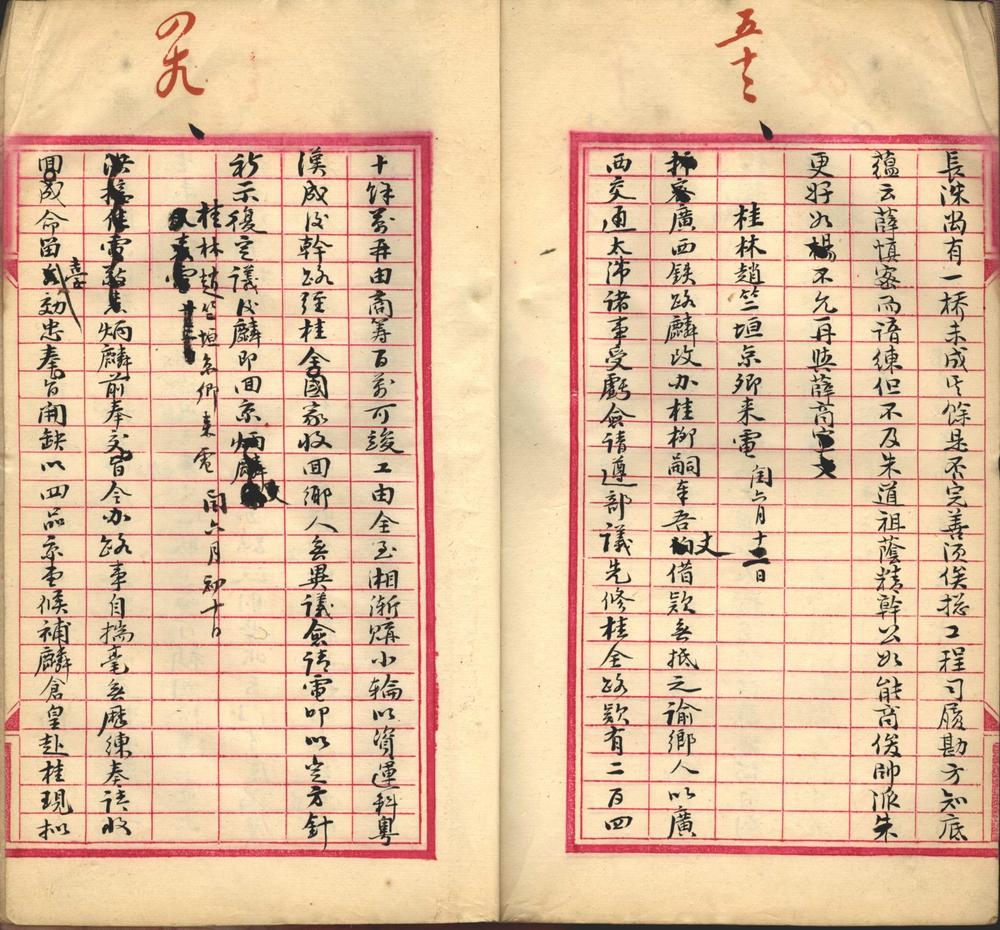 五十三
長洙尚有一橋未成其餘是否完善須俟總工程司履勘方知底
蘊云薛慎密而諳練但不及朱道祖蔭精幹公如能商俊帥派朱
更好如楊不允再與薛商
桂林趙竺垣京卿来電 閏六月十二日
廣西鉄路麟改办桂柳嗣奉吾丈借欵無抵之諭鄉人以廣
西交通太滯諸事受虧僉請遵部議先修桂全路欵有二百四
十餘萬再由商籌百萬可竣工由全至湘漸購小輪以資運料粤
漢成後幹路經桂舍國家收回鄉人無異議僉請電叩以定方針
祈示復定議後麟即回京炳麟
桂林趙竺垣京卿来電 閏六月初十日
炳麟前奉交旨令办路事自揣毫無歷練奏請收
回成命留臺効忠奉旨開缺以四品京堂候補麟倉皇赴桂現拟
四十九